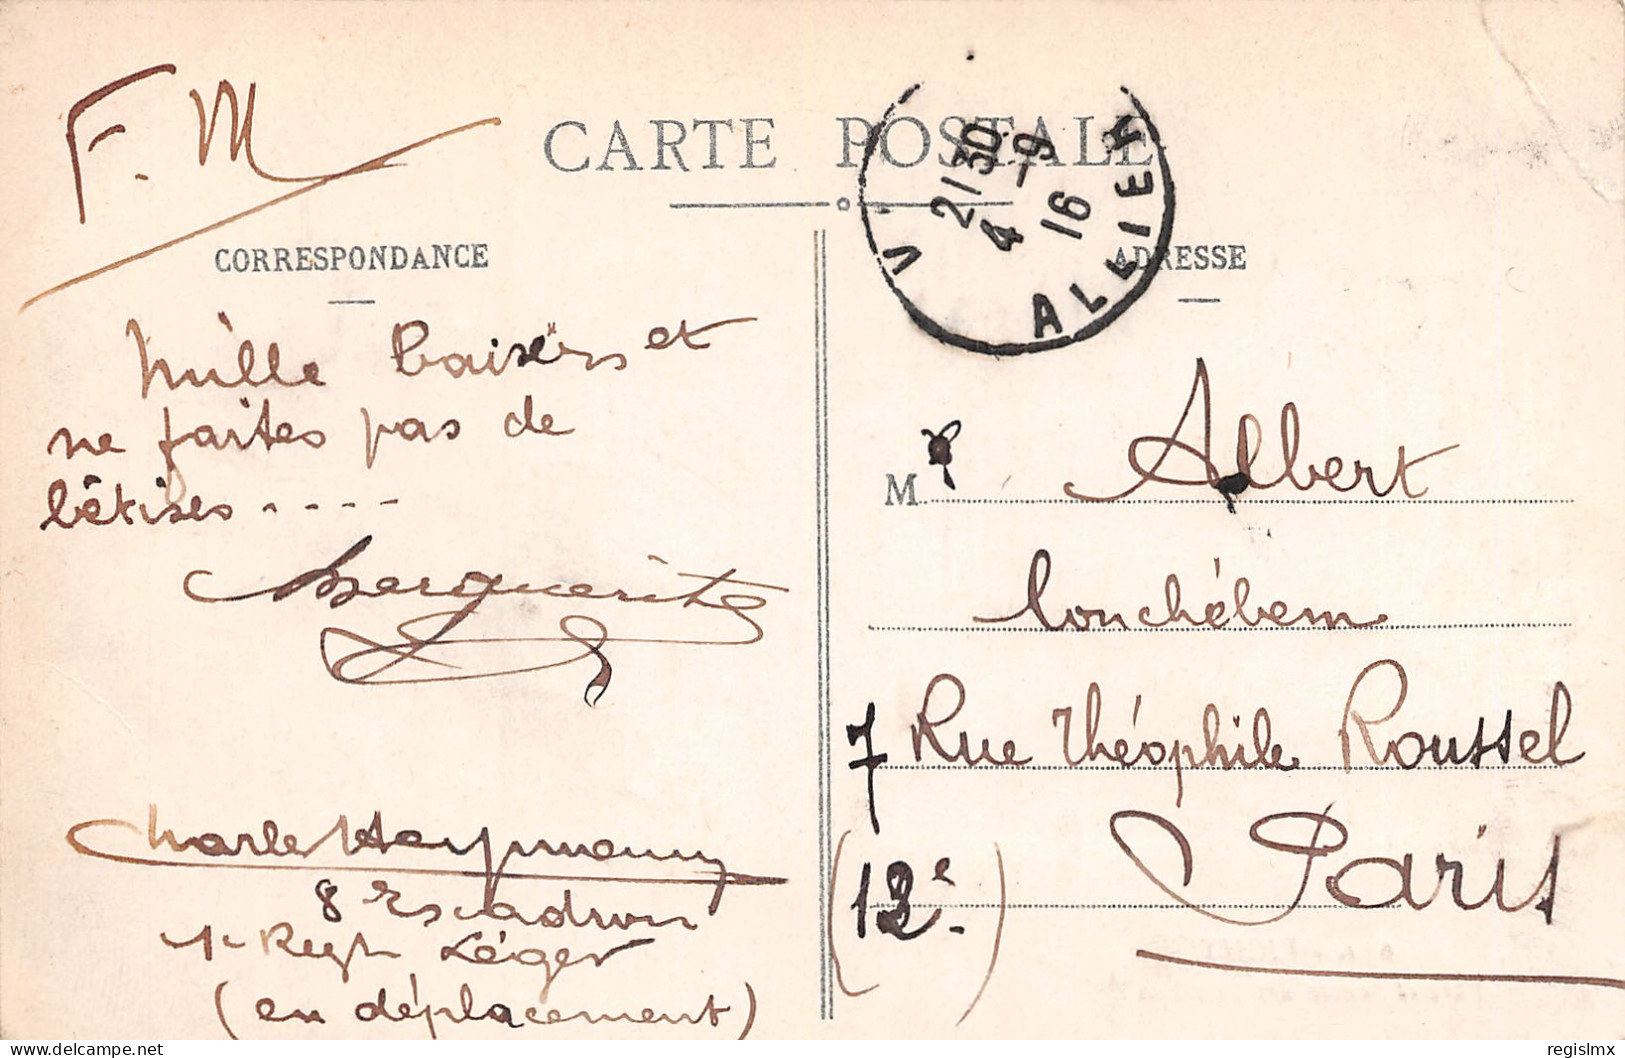 F. M
CARTE POSTALE
21 30
4 -9
16
V
ALLIER
CORRESPONDANCE
ADRESSE
Mille baisers et
ne faites pas de
bêtises ....
Marguerite
Charles Heymann
8 Escadron
1er Regt Léger
(en déplacement)
Mr Albert
Lonchébem
7 Rue Théophile Roussel
(12e.) Paris
delcampe.net
regislmx